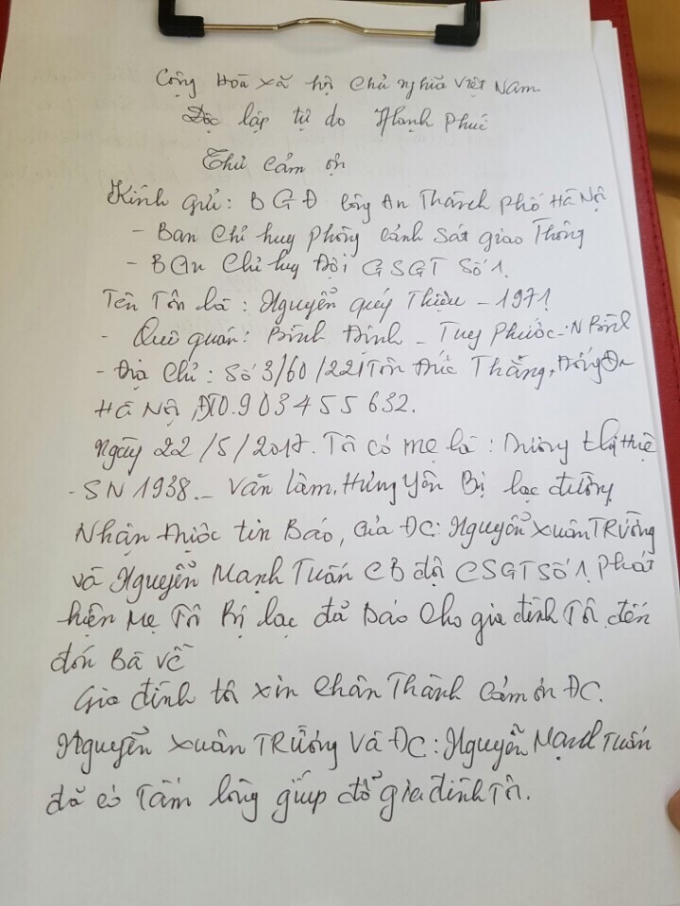 Cộng Hoà xã hội Chủ nghĩa Việt Nam
Độc lập tự do Hạnh Phúc
Thư cảm ơn
Kính gửi: BGĐ Công An Thành phố Hà Nội
- Ban Chỉ huy phòng cảnh sát giao Thông
- BAn Chỉ huy Đội CSGT Số 1.
Tên Tôi là: Nguyễn quý Thiệu - 1971
- Quê quán: Bình Định - Tuy Phước - N Bình
- Địa Chỉ: Số 3/60/221 Tôn Đức Thắng, Đống Đa
Hà Nội, ĐT 0.903455632.
Ngày 22/5/2017. Tôi có mẹ là: Dương thị
- SN 1938. - Văn lâm, Hưng yên Bị lạc đường
Nhận được tin Báo, của ĐC: Nguyễn Xuân TRường
và Nguyễn Mạnh Tuấn CB đội CSGT Số 1 phát
hiện Mẹ Tôi Bị lạc đã Báo cho gia đình Tôi đến
đón Bà về
Gia đình tôi xin chân Thành cảm ơn ĐC.
Nguyễn Xuân TRường và ĐC: Nguyễn Mạnh Tuấn
đã có Tấm lòng giúp đỡ gia đình Tôi.